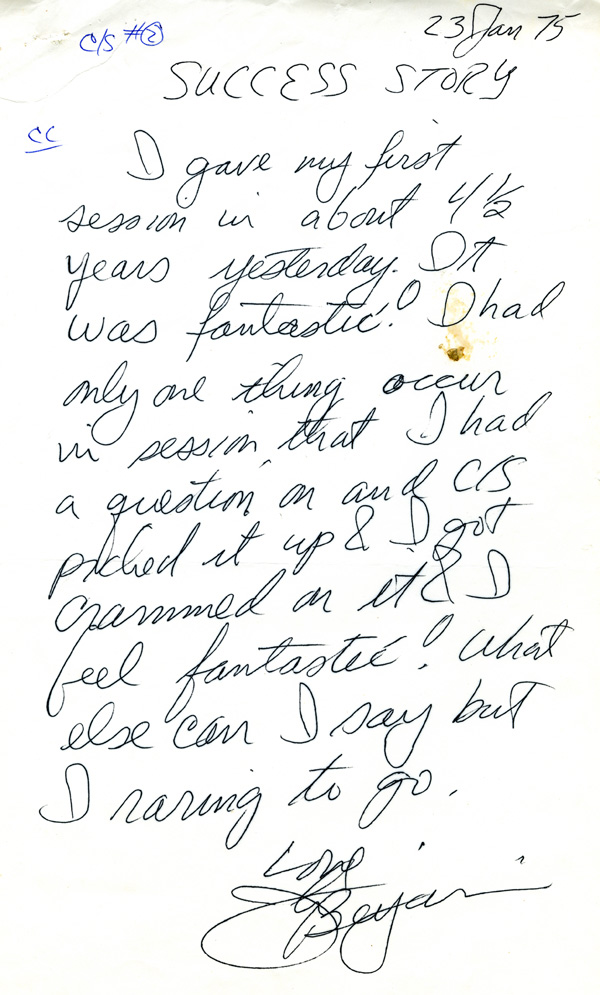 C/S #2
23 Jan 75
SUCCESS STORY
CC
I gave my first
session in about 4 1/2
years yesterday. It
was fantastic! I had
only one thing occur
in session that I had
a question on and C/S
picked it up & I got
crammed on it & I
feel fantastic! What
else can I say but
I raring to go.
Love